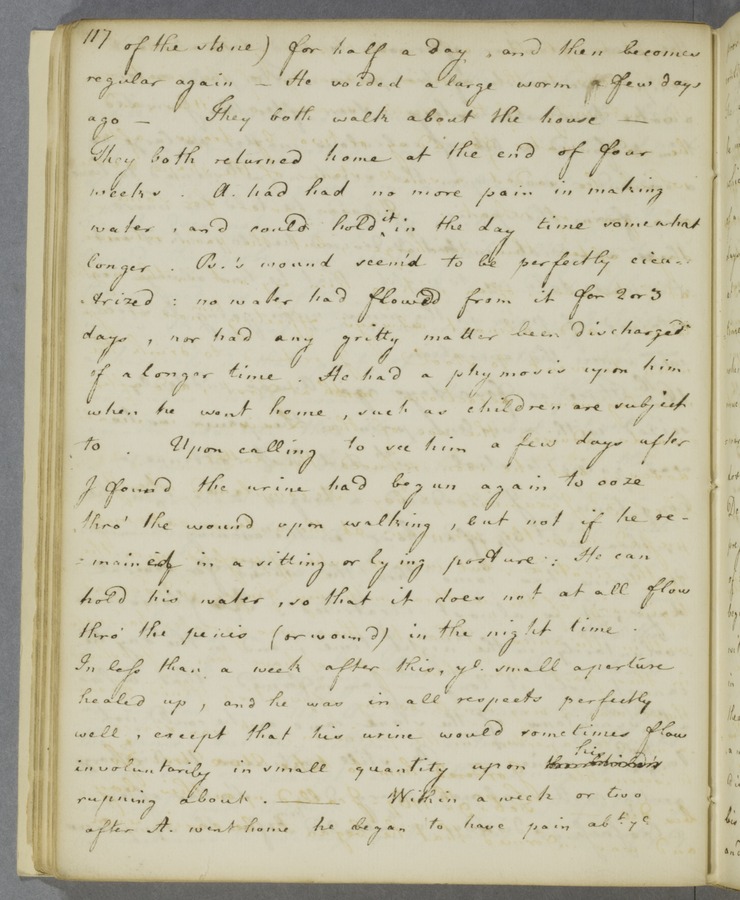 117
of the stone) for half a day, and then becomes
regular again — He voided a large worm a few days
ago — They both walk about the house —
They both returned home at the end of four
weeks. A. had had no more pain in making
water, and could hold it in the day time somewhat
longer. Bs.'s wound seem'd to be perfectly cica-
-trized: no water had flowed from it for 2 or 3
days, nor had any gritty matter been discharged
of a longer time. He had a phymosis upon him
when he went home, such as children are subject
to. Upon calling to see him a few days after
I found the urine had begun again to ooze
thro' the wound upon walking, but not if he re-
-mained in a sitting or lying posture: He can
hold his water, so that it does not at all flow
thro' the penis (or wound) in the night time.
In less than a week after this, ye. small aperture
healed up, and he was in all respects perfectly
well, except that his urine would sometimes flow
involuntarily in small quantity upon his
running about. — Within a week or two
after A. went home he began to have pain abt. ye